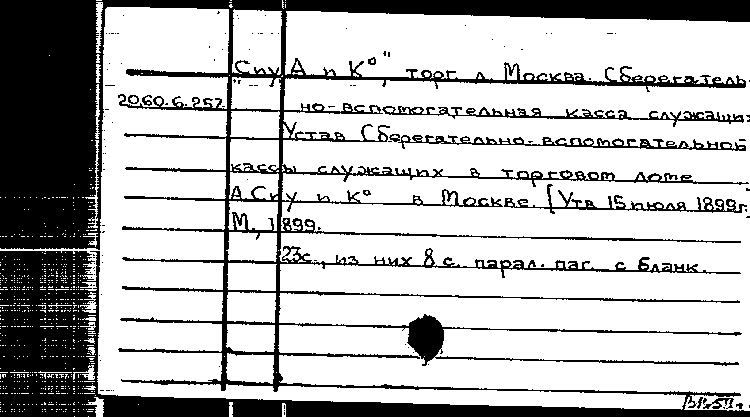 „Спу, А и К°", торг. д. Москва. Сберегатель-
20.60.6.257 но-вспомогательная касса служащих
Устав Сберегательно-вспомогательной
кассы служащих в торговом доме
А. Спу и К° в Москве. [Утв 15 июля 1899г.
М., 1899.
23с., из них 8 с. парал. паг. с бланк.